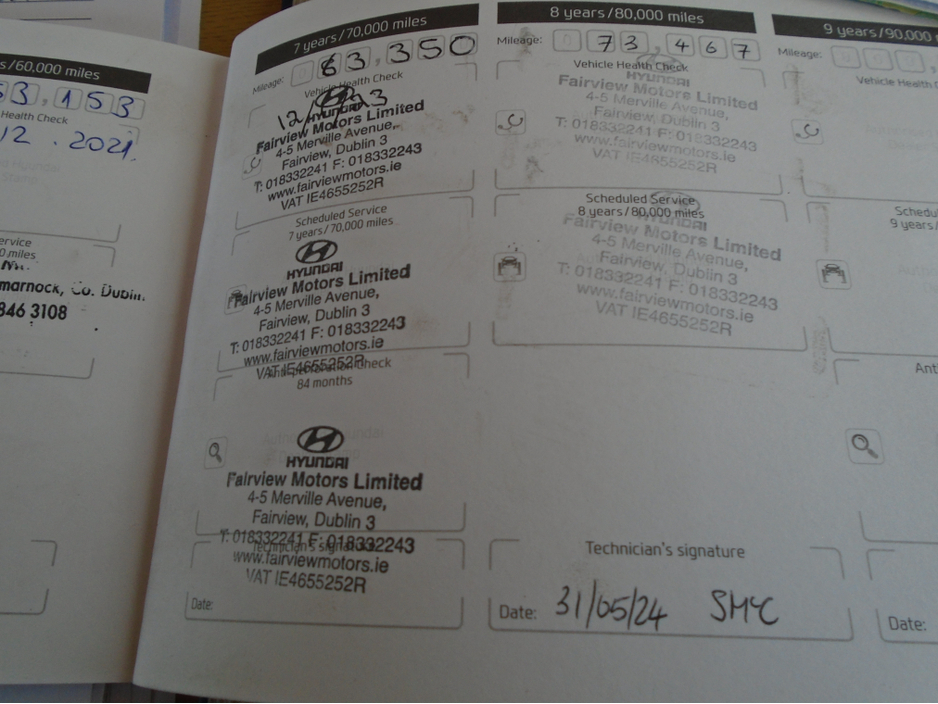 s/60,000 miles
53,153
Health Check
12.2021.
ervice
0 miles
marnock, Co. Dublin.
846 3108
7 years/70,000 miles
Mileage: 0 63,350
Vehicle Health Check
HYUNDAI
Fairview Motors Limited
4-5 Merville Avenue,
Fairview, Dublin 3
T: 018332241 F: 018332243
www.fairviewmotors.ie
VAT IE4655252R
Scheduled Service
7 years/70,000 miles
HYUNDAI
Fairview Motors Limited
4-5 Merville Avenue,
Fairview, Dublin 3
T: 018332241 F: 018332243
www.fairviewmotors.ie
VAT IE4655252R
Check
84 months
HYUNDAI
Fairview Motors Limited
4-5 Merville Avenue,
Fairview, Dublin 3
T: 018332241 F: 018332243
Technician's signature
www.fairviewmotors.ie
VAT IE4655252R
Date:
8 years/80,000 miles
Mileage: 0 73,467
Vehicle Health Check
HYUNDAI
Fairview Motors Limited
4-5 Merville Avenue,
Fairview, Dublin 3
T: 018332241 F: 018332243
www.fairviewmotors.ie
VAT IE4655252R
Scheduled Service
8 years/80,000 miles
Fairview Motors Limited
4-5 Merville Avenue,
Fairview, Dublin 3
T: 018332241 F: 018332243
www.fairviewmotors.ie
VAT IE4655252R
Technician's signature
Date: 31/05/24 SMC
9 years/90,000
Mileage:
Vehicle Health C
Schedu
9 years/
Ant
Date: